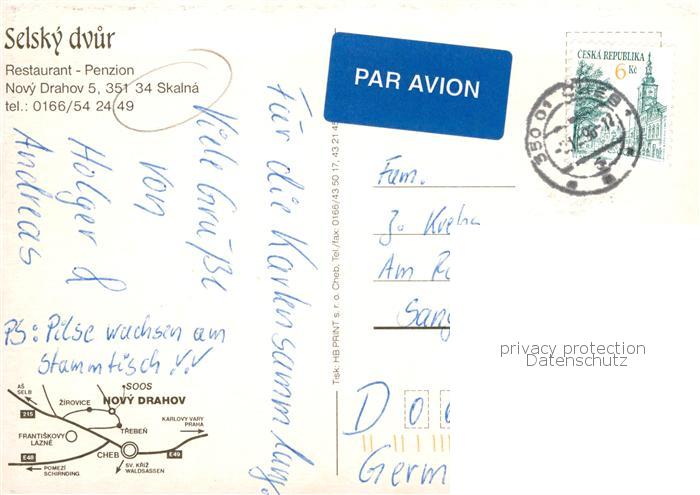 Selský dvůr
Restaurant - Penzion
Nový Drahov 5, 351 34 Skalná
tel.: 0166/54 24 49
Für die Kartensammlung.
Viele Grüße
von
Holger &
Andreas
PS: Pilse wachsen am
Stammtisch !!
AŠ
SELB
SOOS
ŽÍROVICE
NOVÝ DRAHOV
215
TŘEBEŇ
KARLOVY VARY
PRAHA
FRANTIŠKOVY
LÁZNĚ
CHEB
E48
E49
POMEZÍ
SCHIRNDING
SV. KŘÍŽ
WALDSASSEN
Tisk: HB PRINT s. r. o. Cheb, Tel./fax: 0166/43 50 17, 43 21 45
PAR AVION
ČESKÁ REPUBLIKA
6 Kč
350 01 CHEB 1
Fam.
Am
privacy protection
Datenschutz
D
Germ